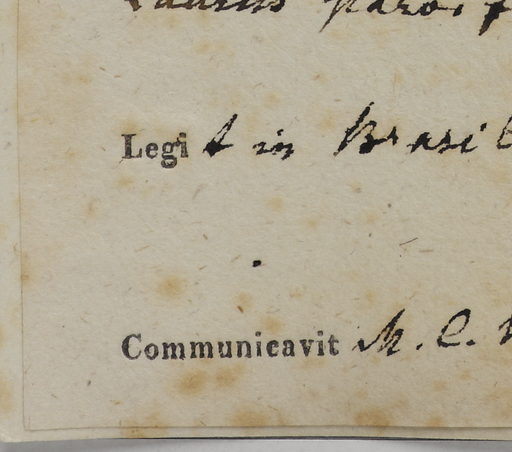 Laurus
Legit in Brasil
Communicavit M. C.